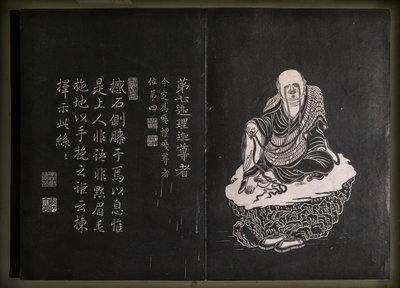 第七迦理迦尊者
今定為嘎禮嘎尊者
位第四
撼石側膝于焉以息惟
是上人非語非默眉毛
拖地以手挽之詎云揀
擇示此絲〻